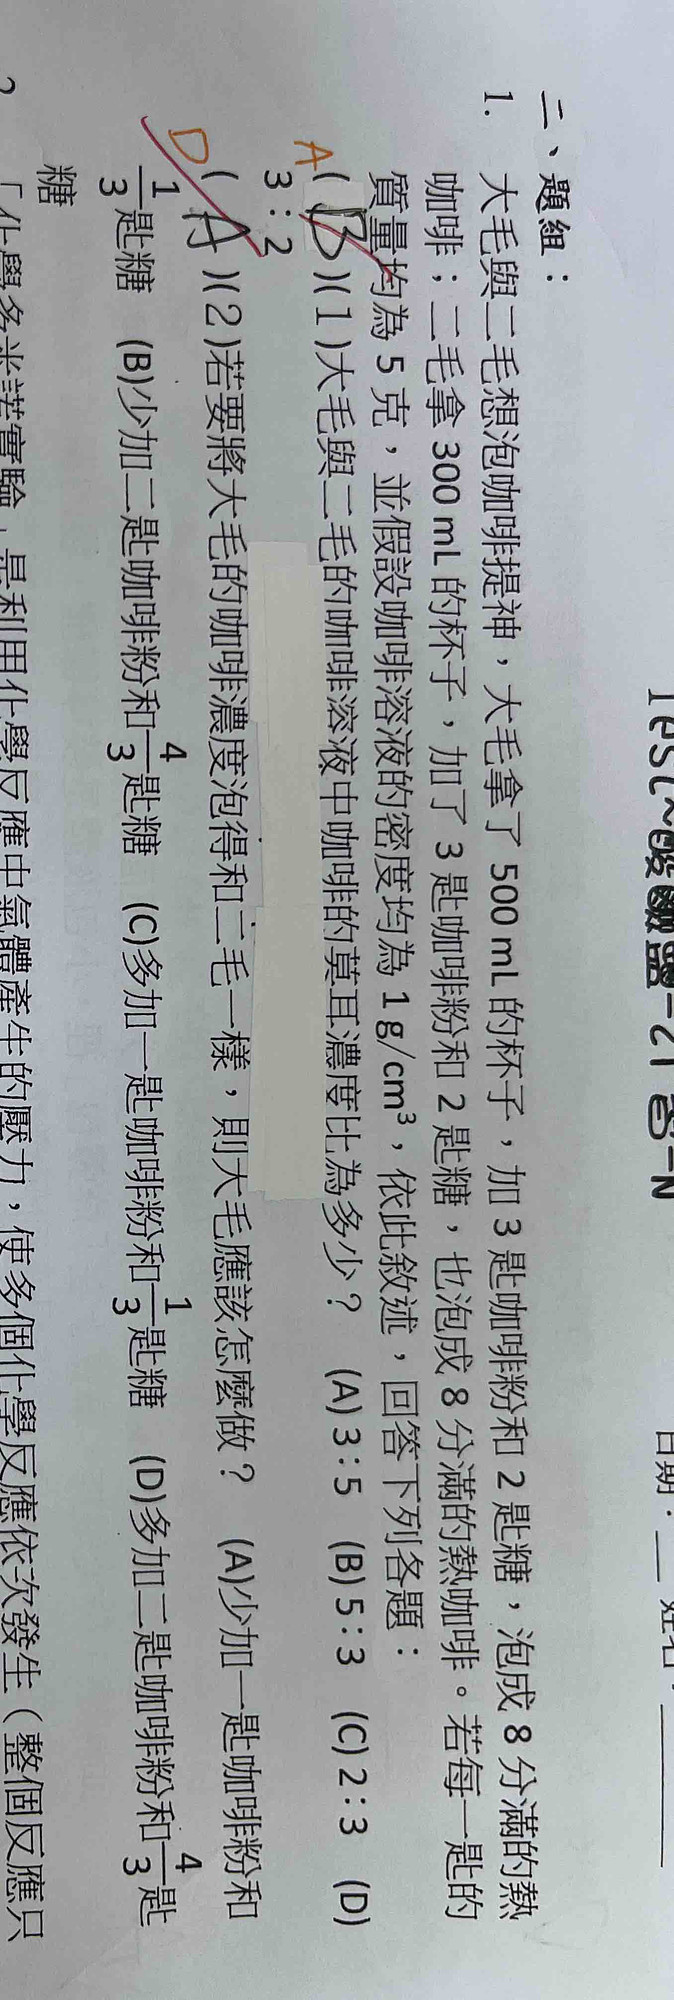 日期：__ 姓名：
二、題組：
1. 大毛與二毛想泡咖啡提神，大毛拿了 500 mL 的杯子，加 3 匙咖啡粉和 2 匙糖，泡成 8 分滿的熱
咖啡；二毛拿 300 mL 的杯子，加了 3 匙咖啡粉和 2 匙糖，也泡成 8 分滿的熱咖啡。若每一匙的
質量均為 5 克，並假設咖啡溶液的密度均為 1 g/cm³，依此敘述，回答下列各題：
A ( B )(1)大毛與二毛的咖啡溶液中咖啡的莫耳濃度比為多少？ (A) 3：5 (B) 5：3 (C) 2：3 (D)
3：2
D ( A )(2)若要將大毛的咖啡濃度泡得和二毛一樣，則大毛應該怎麼做？ (A)少加一匙咖啡粉和
1/3匙糖 (B)少加二匙咖啡粉和4/3匙糖 (C)多加一匙咖啡粉和1/3匙糖 (D)多加二匙咖啡粉和4/3匙
糖
2 「化學多米諾實驗」是利用化學反應中氣體產生的壓力，使多個化學反應依次發生（整個反應只